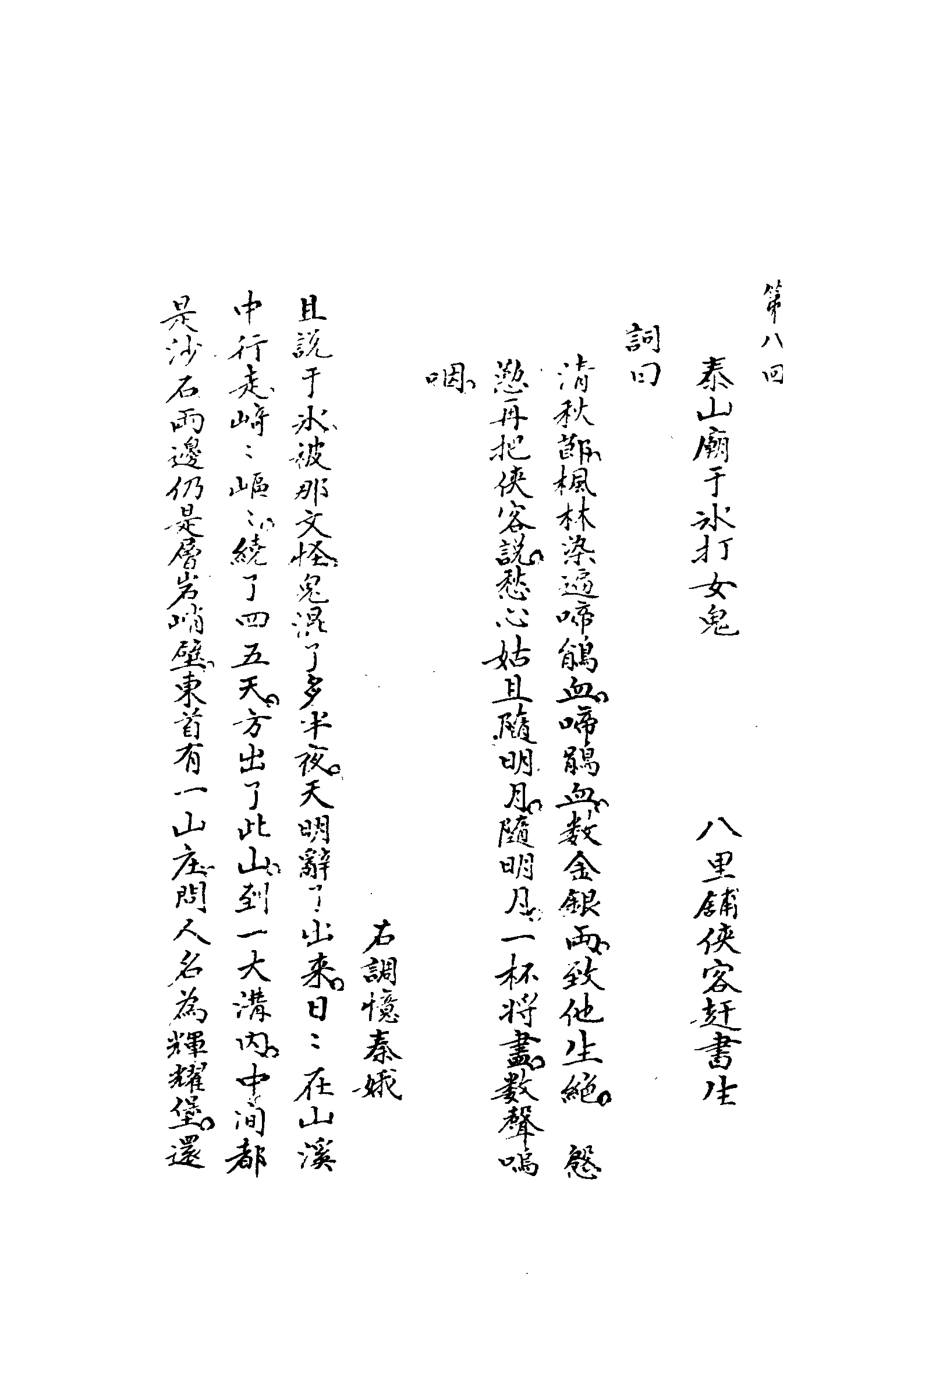 第八回
泰山廟于氷打女鬼　八里鋪俠客赶書生
詞曰
清秋節、楓林染遍啼鵑血。啼鵑血、数金銀両、致他生絶。　愁
愁再把俠客說。愁心姑且隨明月。隨明月。一杯将盡。数聲嗚
咽。
右調憶秦娥
且説于氷、被那文怪。鬼混了多半夜。天明辭了出来。日〻在山溪
中行走、崎〻嶇〻、繞了四五天。方出了此山、到一大溝内、中间都
是沙石両邊仍是層岩峭壁、東首有一山庄、問人名為輝耀堡。還